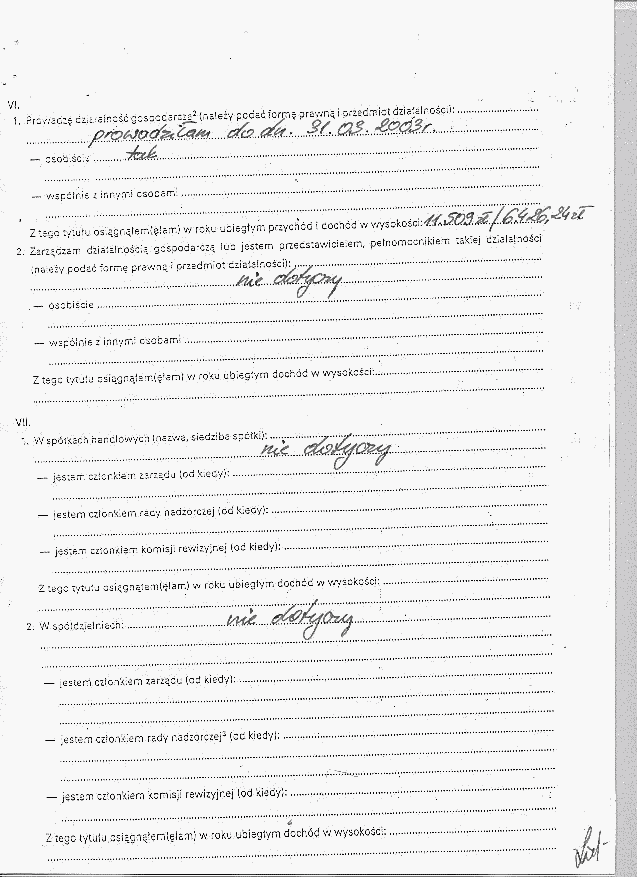 VI.
1. Prowadzę działalność gospodarczą² (należy podać formę prawną i przedmiot działalności):
prowadziłam do dn. 31.03.2003r.
— osobiście tak
— wspólnie z innymi osobami
Z tego tytułu osiągnąłem(ęłam) w roku ubiegłym przychód i dochód w wysokości: 11.509 zł / 6.426,24 zł
2. Zarządzam działalnością gospodarczą lub jestem przedstawicielem, pełnomocnikiem takiej działalności
(należy podać formę prawną i przedmiot działalności):
nie dotyczy
— osobiście
— wspólnie z innymi osobami
Z tego tytułu osiągnąłem(ęłam) w roku ubiegłym dochód w wysokości:
VII.
1. W spółkach handlowych (nazwa, siedziba spółki):
nie dotyczy
— jestem członkiem zarządu (od kiedy):
— jestem członkiem rady nadzorczej (od kiedy):
— jestem członkiem komisji rewizyjnej (od kiedy):
Z tego tytułu osiągnąłem(ęłam) w roku ubiegłym dochód w wysokości:
2. W spółdzielniach: nie dotyczy
— jestem członkiem zarządu (od kiedy):
— jestem członkiem rady nadzorczej³ (od kiedy):
— jestem członkiem komisji rewizyjnej (od kiedy):
Z tego tytułu osiągnąłem(ęłam) w roku ubiegłym dochód w wysokości: